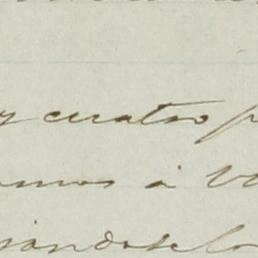 y cuatro p
amos á V
iandoselo